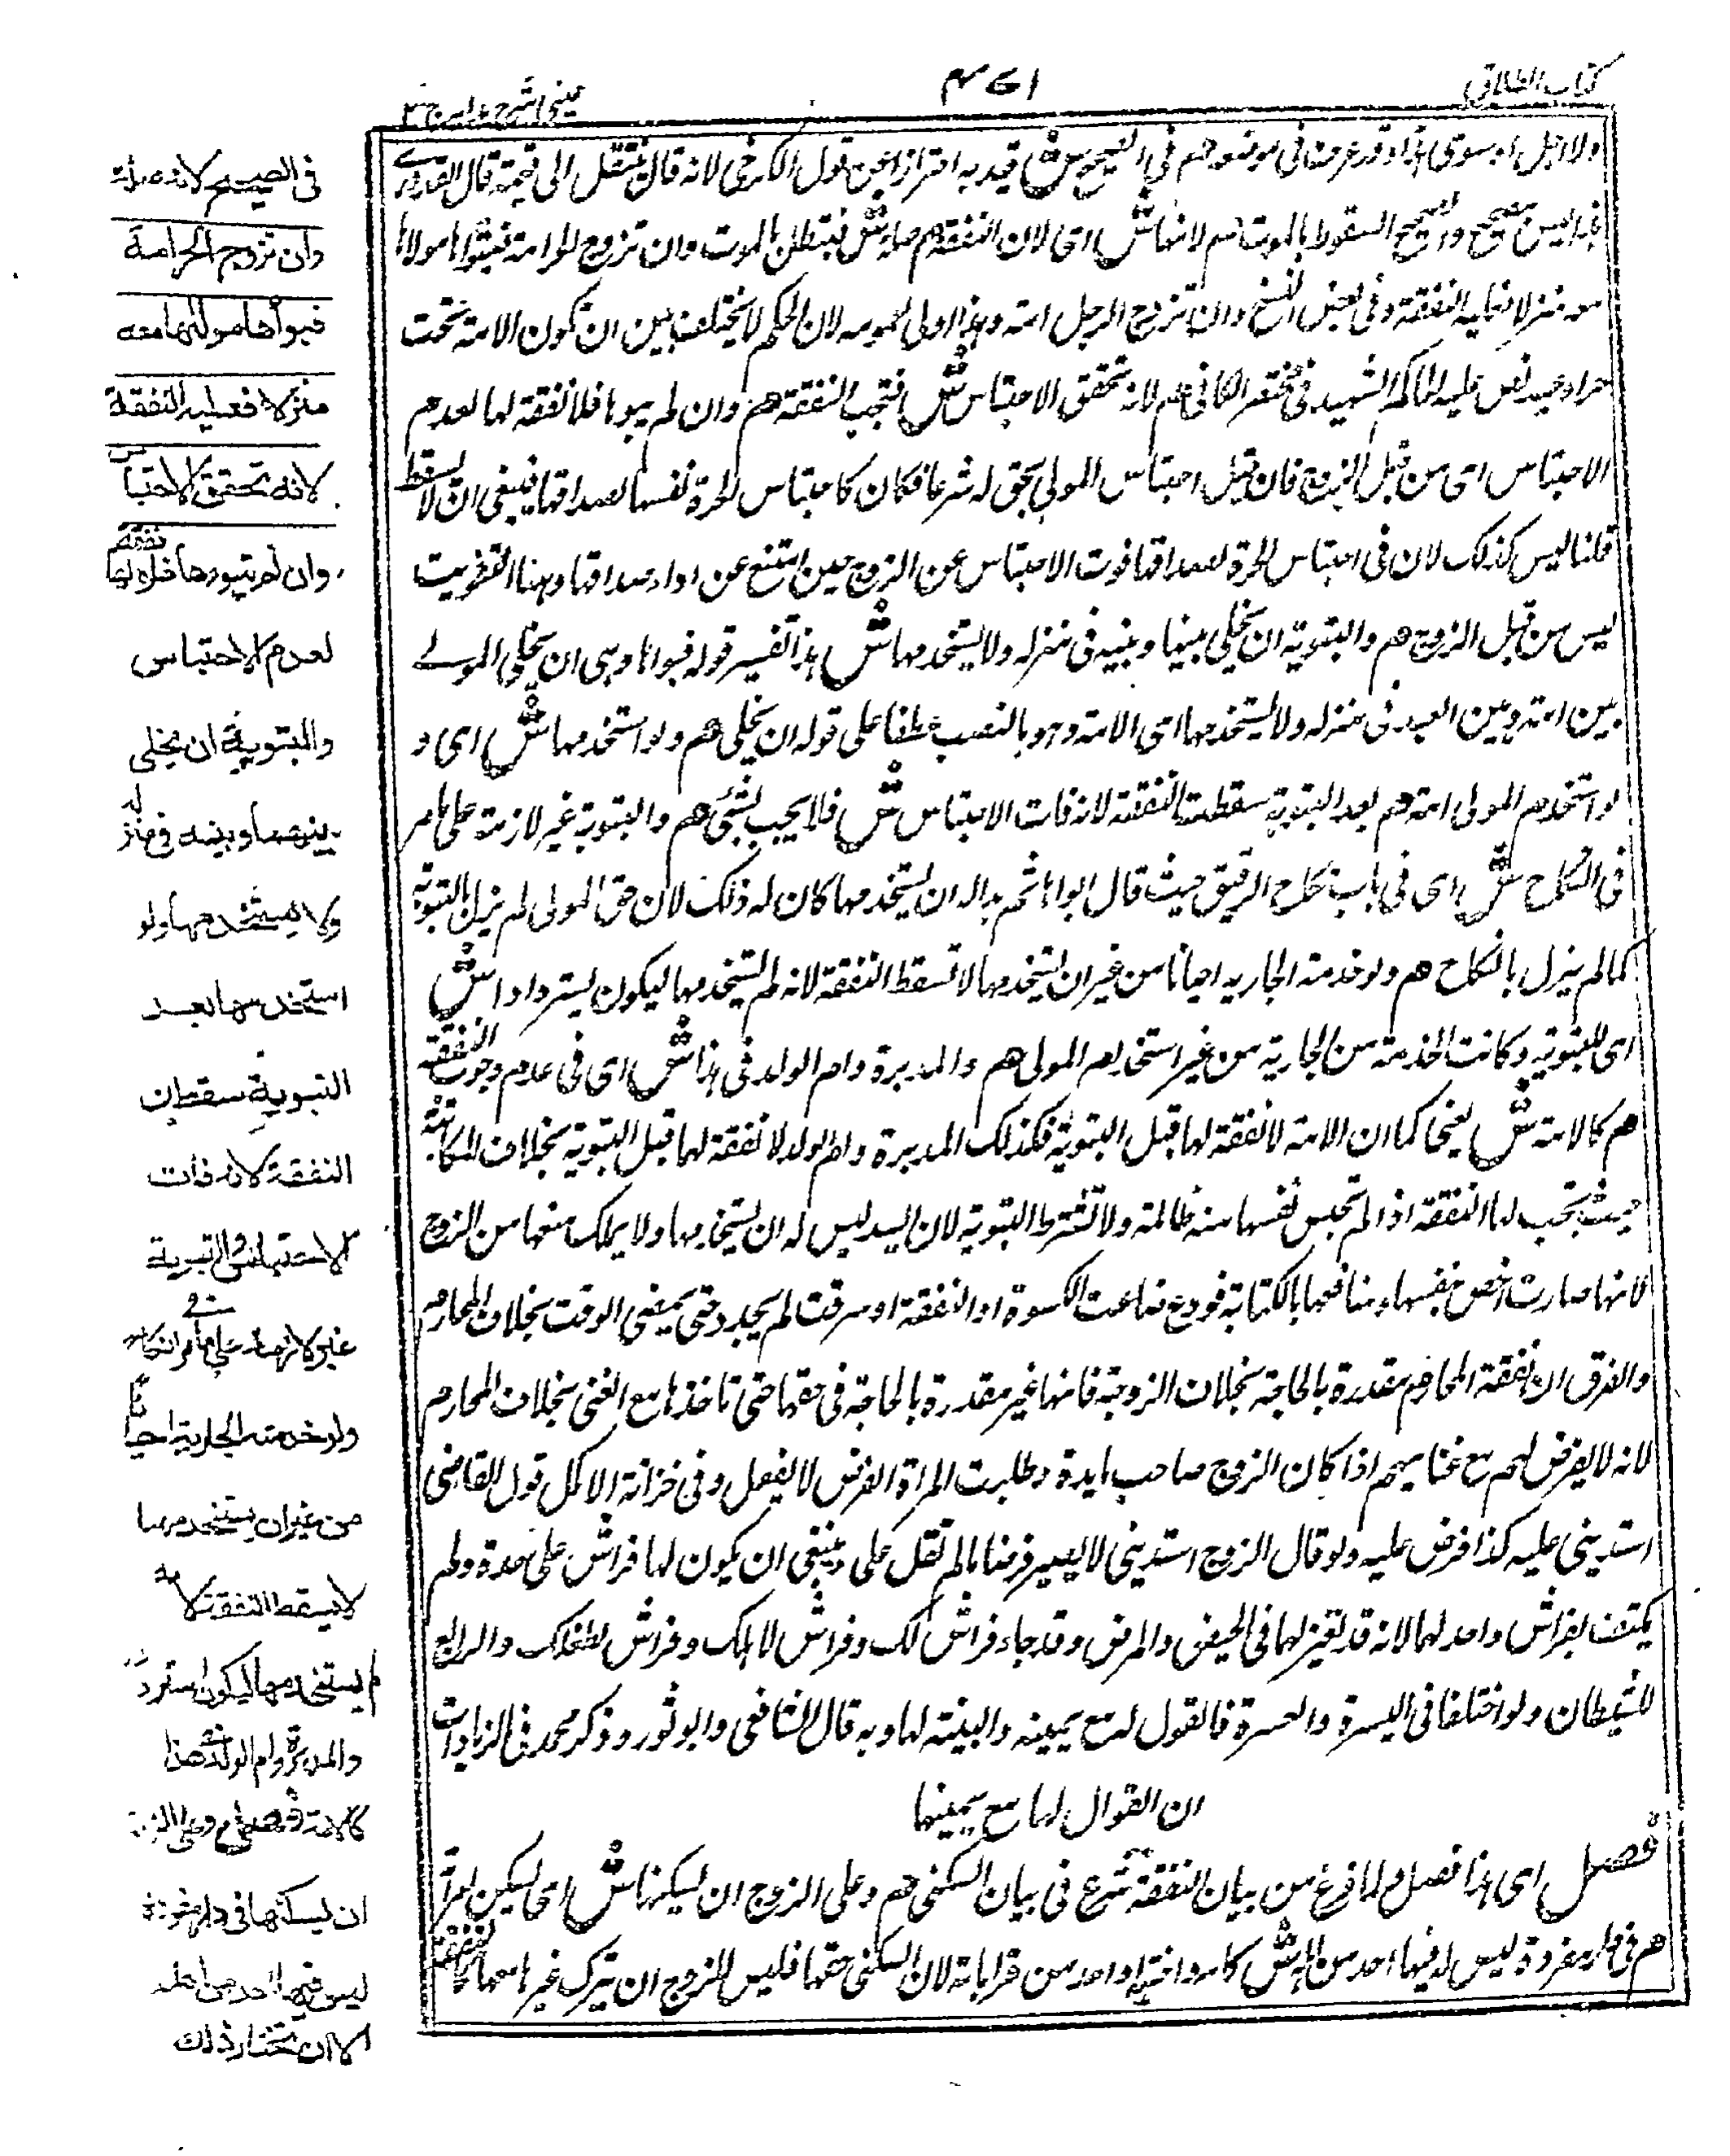 كتاب الطلاق
عينى شرح هداية ج ٢
هم في الصحيح ش قيد به احترازا عن قول الكرخي لانه قال ينتقل الى قيمته قال القدورى
هذا ليس بصحيح والصحيح السقوط بالموت هم لانها ش اى لان النفقة هم صلة ش فتبطل بالموت وان تزوج الحر امة فبوأها مولاها
معه منزلا فعليه النفقة وفى بعض النسخ وان تزوج الرجل امته وهذا اولى لعمومه لان الحكم لا يختلف بين ان تكون الامة تحت
حر او عبد نص عليه الحاكم الشهيد فى مختصر الكافى هم لانه تحقق الاحتباس ش فتجب النفقة هم وان لم يبوها فلا نفقة لها لعدم
الاحتباس اى من قبل الزوج فان قيل احتباس المولى بحق له شرعا فكان كاحتباس الحرة نفسها لصداقها فينبغى ان لا يسقط
قلنا ليس كذلك لان فى احتباس الحرة لصداقها فوت الاحتباس عن الزوج حين امتنع عن اداء صداقها وهنا التفويت
ليس من قبل الزوج هم والتبوية ان يخلى بينها وبينه فى منزله ولا يستخدمها ش هذا تفسير قوله فبواها وهى ان يخلى المولى
بين امته وبين العبد فى منزله ولا يستخدمها اى الامة وهو بالنصب عطفا على قوله ان يخلى هم ولو استخدمها ش اى و
لو استخدم المولى امته هم بعد التبوية سقطت النفقة لانه فات الاحتباس ش فلا يجب شئ هم والتبوية غير لازمة على ما مر
فى النكاح ش اى فى باب نكاح الرقيق حيث قال بواها ثم بدا له ان يستخدمها كان له ذلك لان حق المولى لم يزل بالتبوية
كما لم يزل بالنكاح هم ولو خدمته الجارية احيانا من غير ان يستخدمها لا تسقط النفقة لانه لم يستخدمها ليكون استردادا ش
اى للتبوية وكانت الخدمة من الجارية من غير استخدام المولى هم والمدبرة وام الولد فى هذا ش اى فى عدم وجوب النفقة
هم كالامة ش يعنى كما ان الامة لا نفقة لها قبل التبوية فكذلك المدبرة وام الولد لا نفقة لهما قبل التبوية بخلاف المكاتبة
حيث تجب لها النفقة اذا لم تحبس نفسها منه ظالمة ولا تشترط التبوية لان السيد ليس له ان يستخدمها ولا يملك منعها من الزوج
لانها صارت اخص بنفسها ومنافعها بالكتابة فروع ضاعت الكسوة او النفقة او سرقت لم يجدد حتى يمضى الوقت بخلاف المحارم
والفرق ان نفقة المحارم مقدرة بالحاجة بخلاف الزوجة فانها غير مقدرة بالحاجة فى حقها حتى تاخذها مع الغنى بخلاف المحارم
لانه لا يفرض لهم مع غناهم اذا كان الزوج صاحب مايدة وطلبت المراة الفرض لا يفعل وفى خزانة الاكمل قول القاضى
استدينى عليه كذا فرض عليه ولو قال الزوج استدينى لا يصير فرضا ما لم تقل على وينبغى ان يكون لها فراش على حدة ولم
يكتف بفراش واحد لهما لانه قد تعتزلها فى الحيض والمرض وقد جاء فراش لك وفراش لاهلك وفراش لضيفك والرابع
للشيطان ولو اختلفا فى اليسرة والعسرة فالقول له مع يمينه والبينة لها وبه قال الشافعى وابو ثور وذكر محمد فى الزيادات
ان القول لها مع يمينها
فصل اى هذا فصل ولما فرغ من بيان النفقة شرع فى بيان السكنى هم وعلى الزوج ان يسكنها ش اى يسكن امرأته
هم فى دار مفردة ليس فيها احد من اهله ش كامه واخته او احد من قراباته لان السكنى حقها فليس للزوج ان يترك غيرها معها كالنفقة
فى الصحيح لانه صلة
وان تزوج الحر امة
فبوأها مولاها معه
منزلا فعليه النفقة
لانه تحقق الاحتباس
وان لم يبوءها فلا نفقة لها
لعدم الاحتباس
والتبوية ان يخلى
بينها وبينه فى منزله
ولا يستخدمها ولو
استخدمها بعد
التبوية سقطت
النفقة لانه فات
الاحتباس والتبوية
غير لازمة على ما مر فى النكاح
ولو خدمته الجارية احيانا
من غير ان يستخدمها
لا يسقط النفقة لانه
لم يستخدمها ليكون استردادا
والمدبرة وام الولد فى هذا
كالامة فصل وعلى الزوج
ان يسكنها فى دار مفردة
ليس فيها احد من اهله
الا ان تختار ذلك